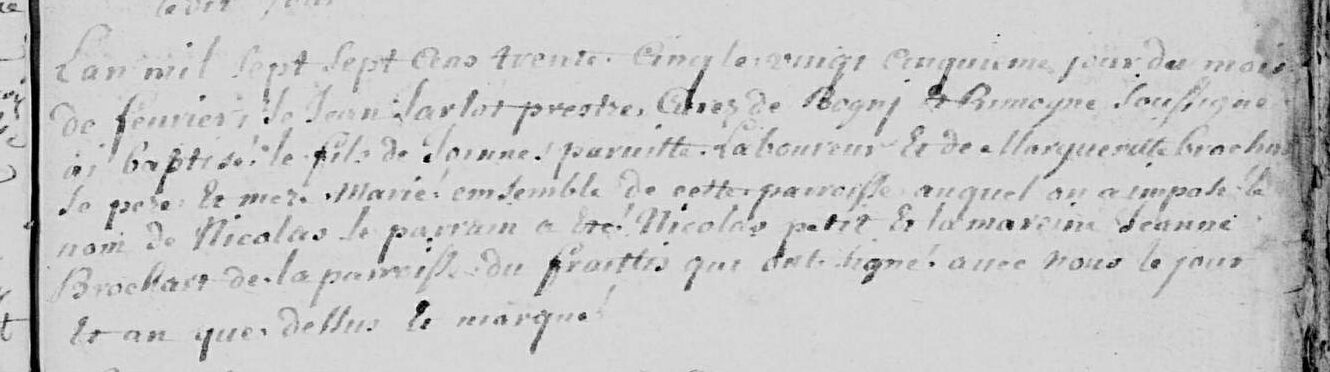 Lan mil sept sept cens trente cinq le vingt cinquieme jour du mois
de feuvrier, Je Jean Jarlot prestre Curez de Rogni et Rimogne soussigné
ai baptisé le fils de paruitte Laboureur Et de Margueritte brochar
Le pere Et mere Marié ensemble de cette parroisse auquel on a imposé le
nom de Nicolas le parrain a Eté Nicolas petit Et la mareine Jeanne
Brochart de la parroisse du fraittis qui ont signé avec nous le jour
Et an que dessus Et marqué